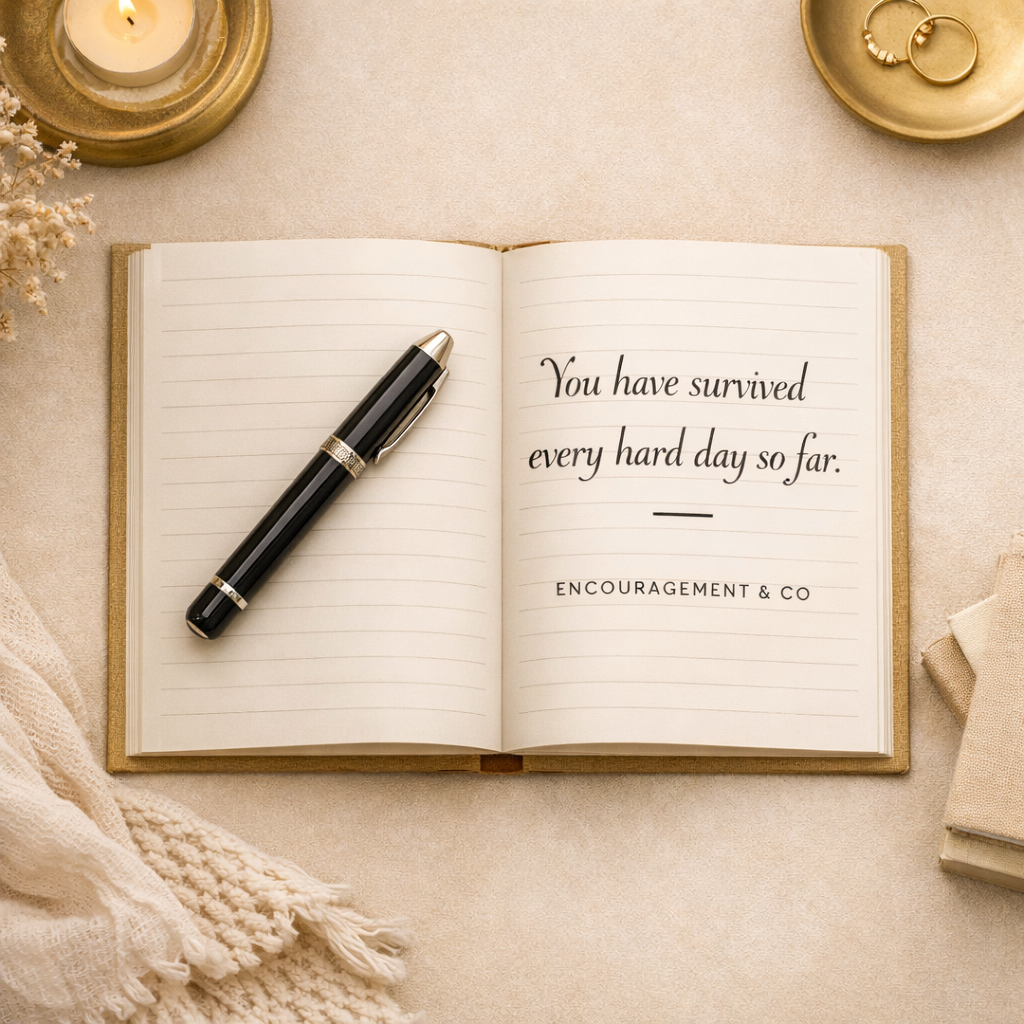 You have survived
every hard day so far.
ENCOURAGEMENT & CO